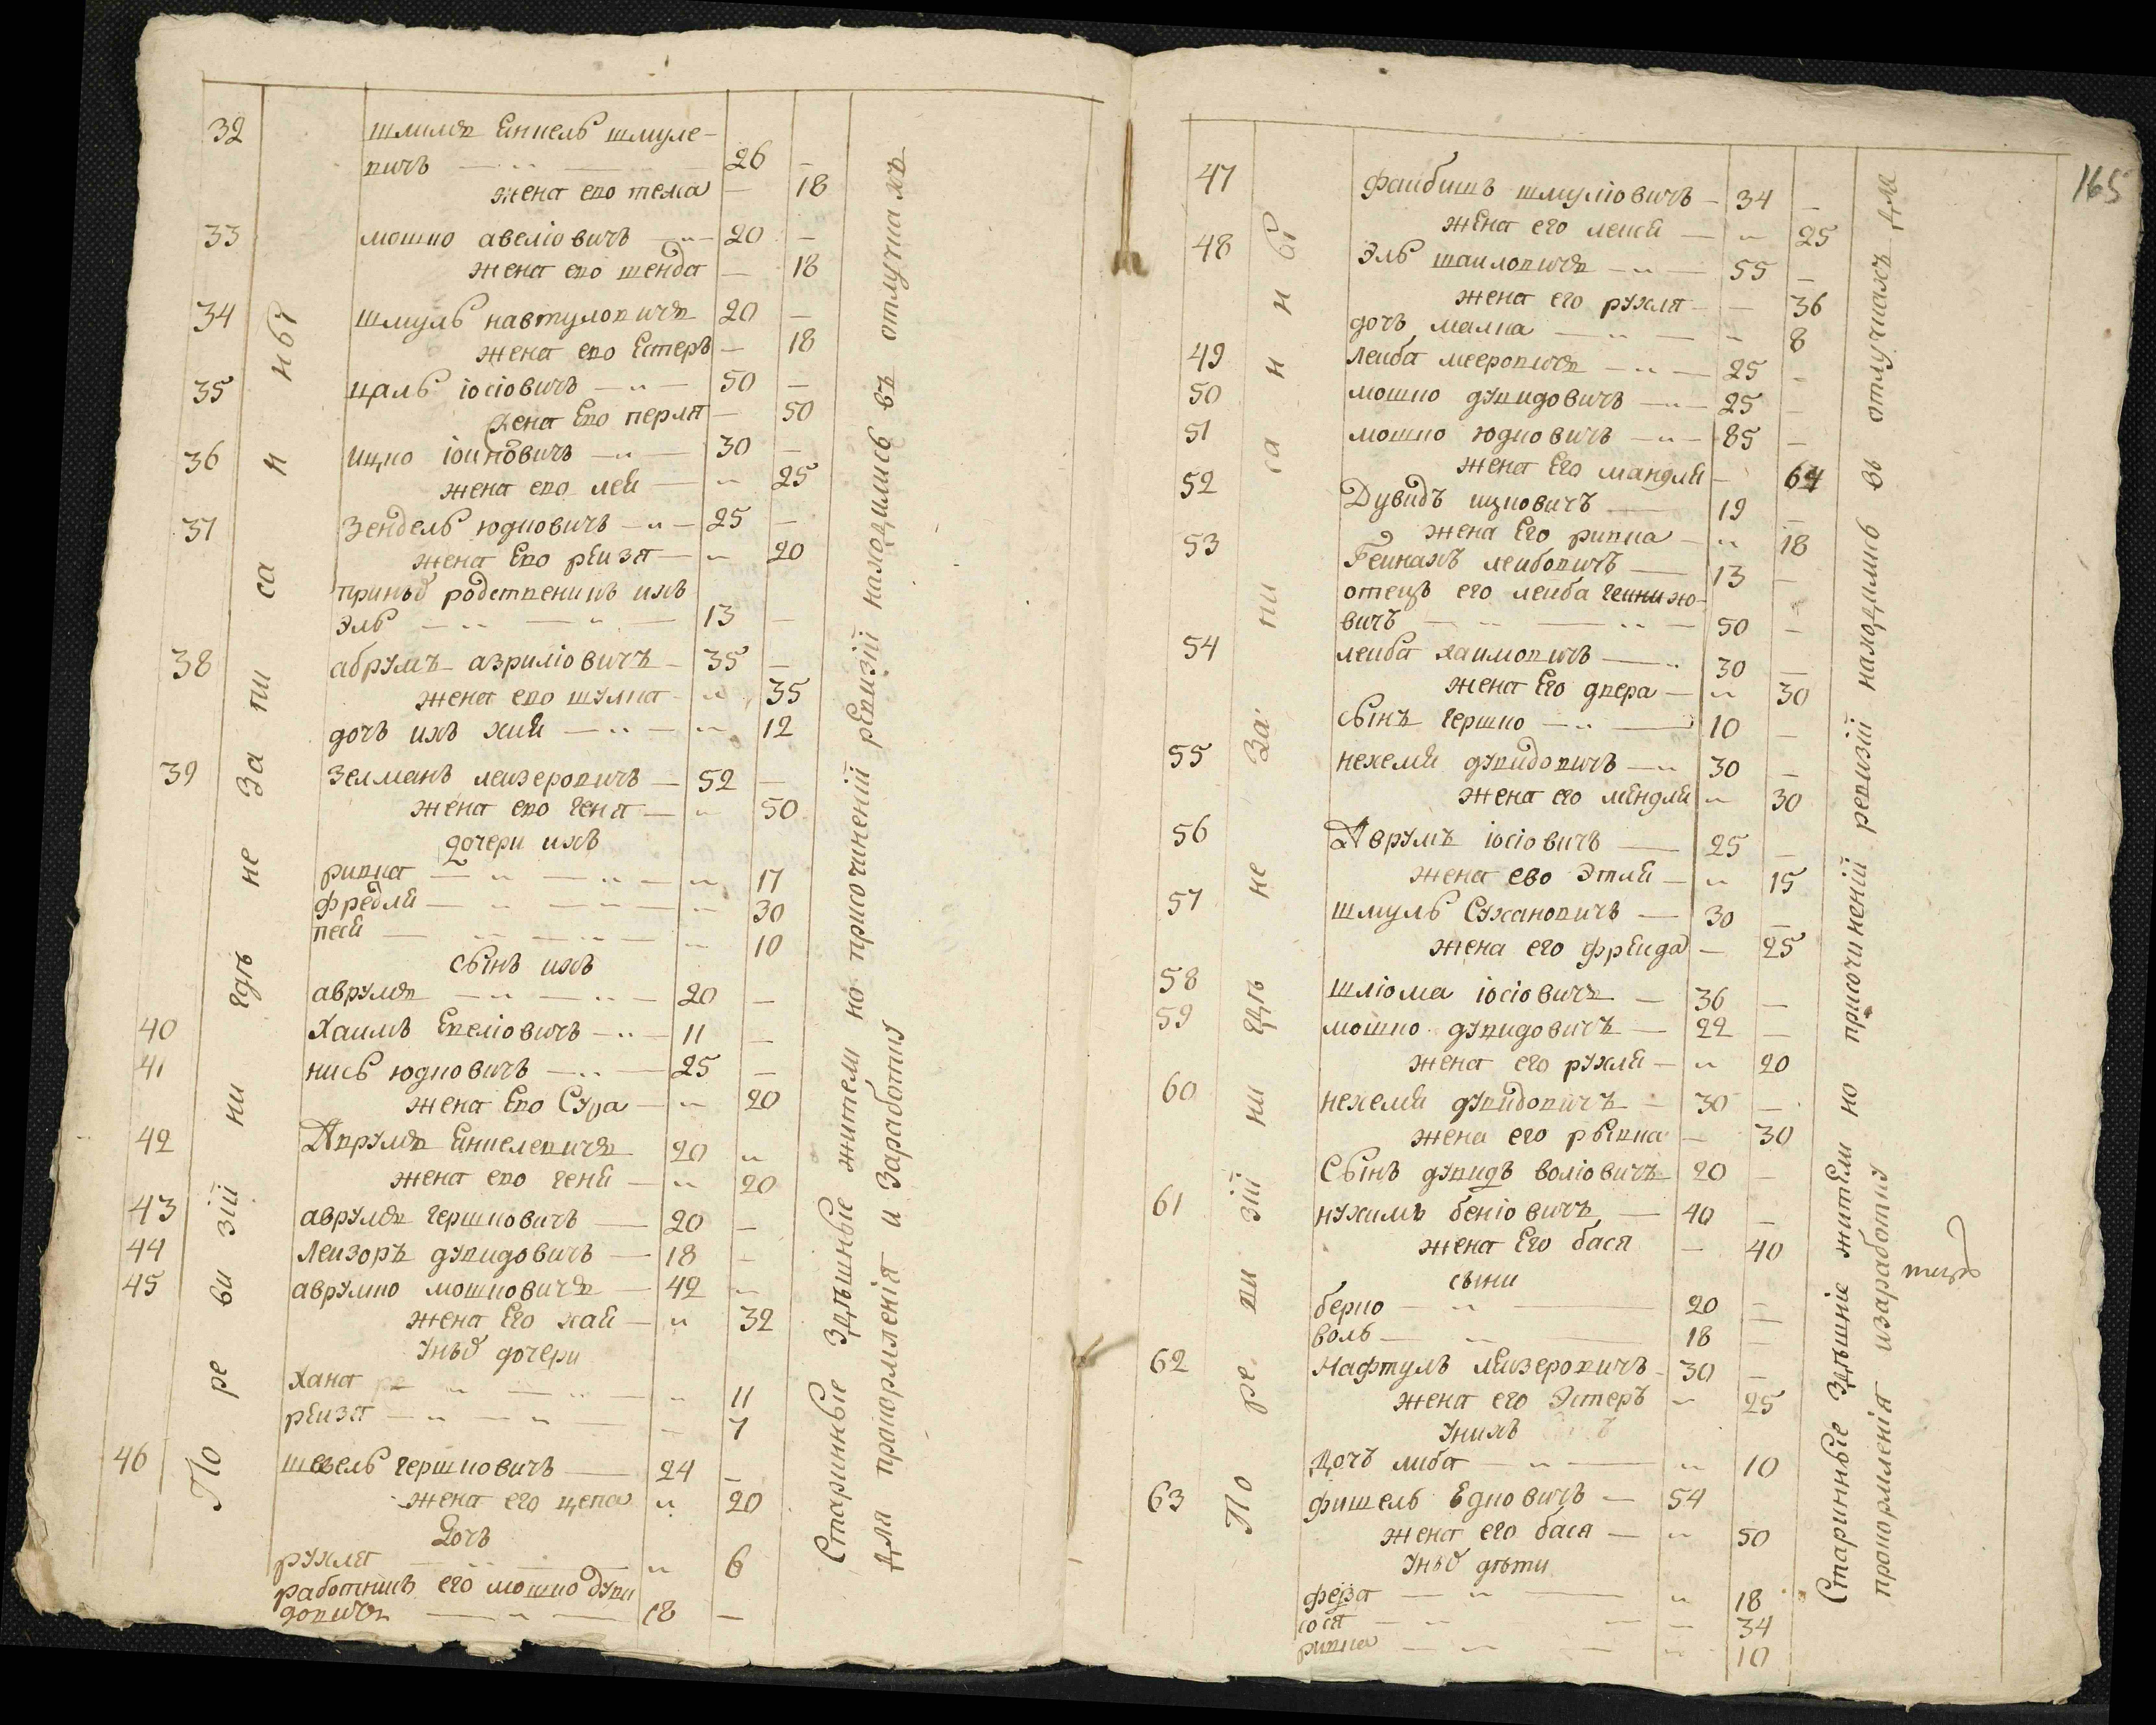 32 шмилъ Енкель шмуле-
вичъ — 26 —
жена ево тема — 18
33 мошко авеліовичъ — 20 —
жена ево шенда — 18
34 шмуль навтуловичъ 20 —
жена ево Естеръ — 18
35 цаль іосіовичъ — 50 —
жена Ево перля — 50
36 ицко — 30 —
жена ево лея — 25
37 Зендель юдковичъ — 25 —
жена Ево реиза — 20
принѣ родственикъ ихъ
эль — 13 —
38 абрумъ азриліовичъ — 35 —
жена ево шулка — 35
дочъ ихъ хия — 12
39 Зелманъ леизеровичъ — 52 —
жена ево геня — 50
дочери ихъ
ривка — 17
фредля — 30
песя — 10
сынъ ихъ
аврумъ — 20 —
40 Хаимъ Евеліовичъ — 11 —
41 кись юдковичъ — 25 —
жена Ево Сура — 20
42 Аврумъ Енкелевичъ 20
жена ево геня — 20
43 аврумъ гершковичъ — 20 —
44 Леизоръ дувидовичъ — 18 —
45 аврумко мошковичъ — 42
жена Его хая — 32
Унѣо дочери
Хана — 11
реиза — 7
46 шевель гершковичъ — 24 —
жена его цепа 20
Дочъ
рухля — 6
работникъ его мошко дуви
довичъ — 18 —
По ре ви зіи ни гдѣ не За пи са н ны
Старинные Здѣшные жители но присочиненіи ревизіи находились въ отлучкахъ
для прокормленія и Заработку
165
47 Фаибишъ шмуліовичъ — 34 —
жена его леися — 25
48 Эль шаиловичъ — 55 —
жена его рухля — 36
дочъ малка — 8
49 Леиба мееровичъ — 25 —
50 мошко дувидовичъ — 25 —
51 мошко юдковичъ — 85 —
жена Его мандля — 64
52 Дувидъ ицковичъ — 19 —
жена Его ривка — 18
53 Геинахъ леибовичъ — 13 —
отецъ его леиба генихо-
вичъ — 50 —
54 леиба хаимовичъ — 30 —
жена Его двера — 30
сынъ гершко — 10 —
55 нехемя дувидовичъ — 30 —
жена его мендля 30
56 Аврумъ іосіовичъ — 25 —
жена ево Этля — 15
57 шмуль Сухановичъ — 30 —
жена его фреида — 25
58 шліома іосіовичъ — 36 —
59 мошко дувидовичъ — 22 —
жена его рухля — 20
60 нехемя дувидовичъ — 30 —
жена его рывка — 30
Сынъ дувидъ воліовичъ 20 —
61 нухимъ беніовичъ — 40 —
жена Его бася — 40
сыни
берко — 20 —
воль — 18 —
62 Нафтулъ леизеровичъ 30 —
жена его Эстеръ 25
Унихъ
Дочъ либа — 10
63 фишель Едковичъ — 54
жена его бася — 50
Унѣо дѣти
фейза — 18
сося — 34
ривка — 10
По ре ви зіи ни гдѣ не За пи са н н ы
Старинные Здѣшніе жители но присочиненіи ревизіи находились въ отлучкахъ для
прокормленія изаработку